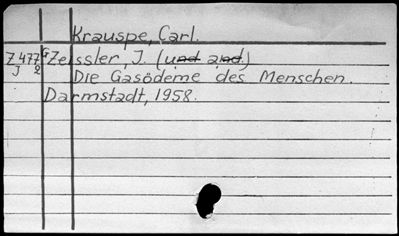 Krauspe, Carl.
Z 477 G Zeissler, J. (und and)
J 2 Die Gasödeme des Menschen.
Darmstadt, 1958.